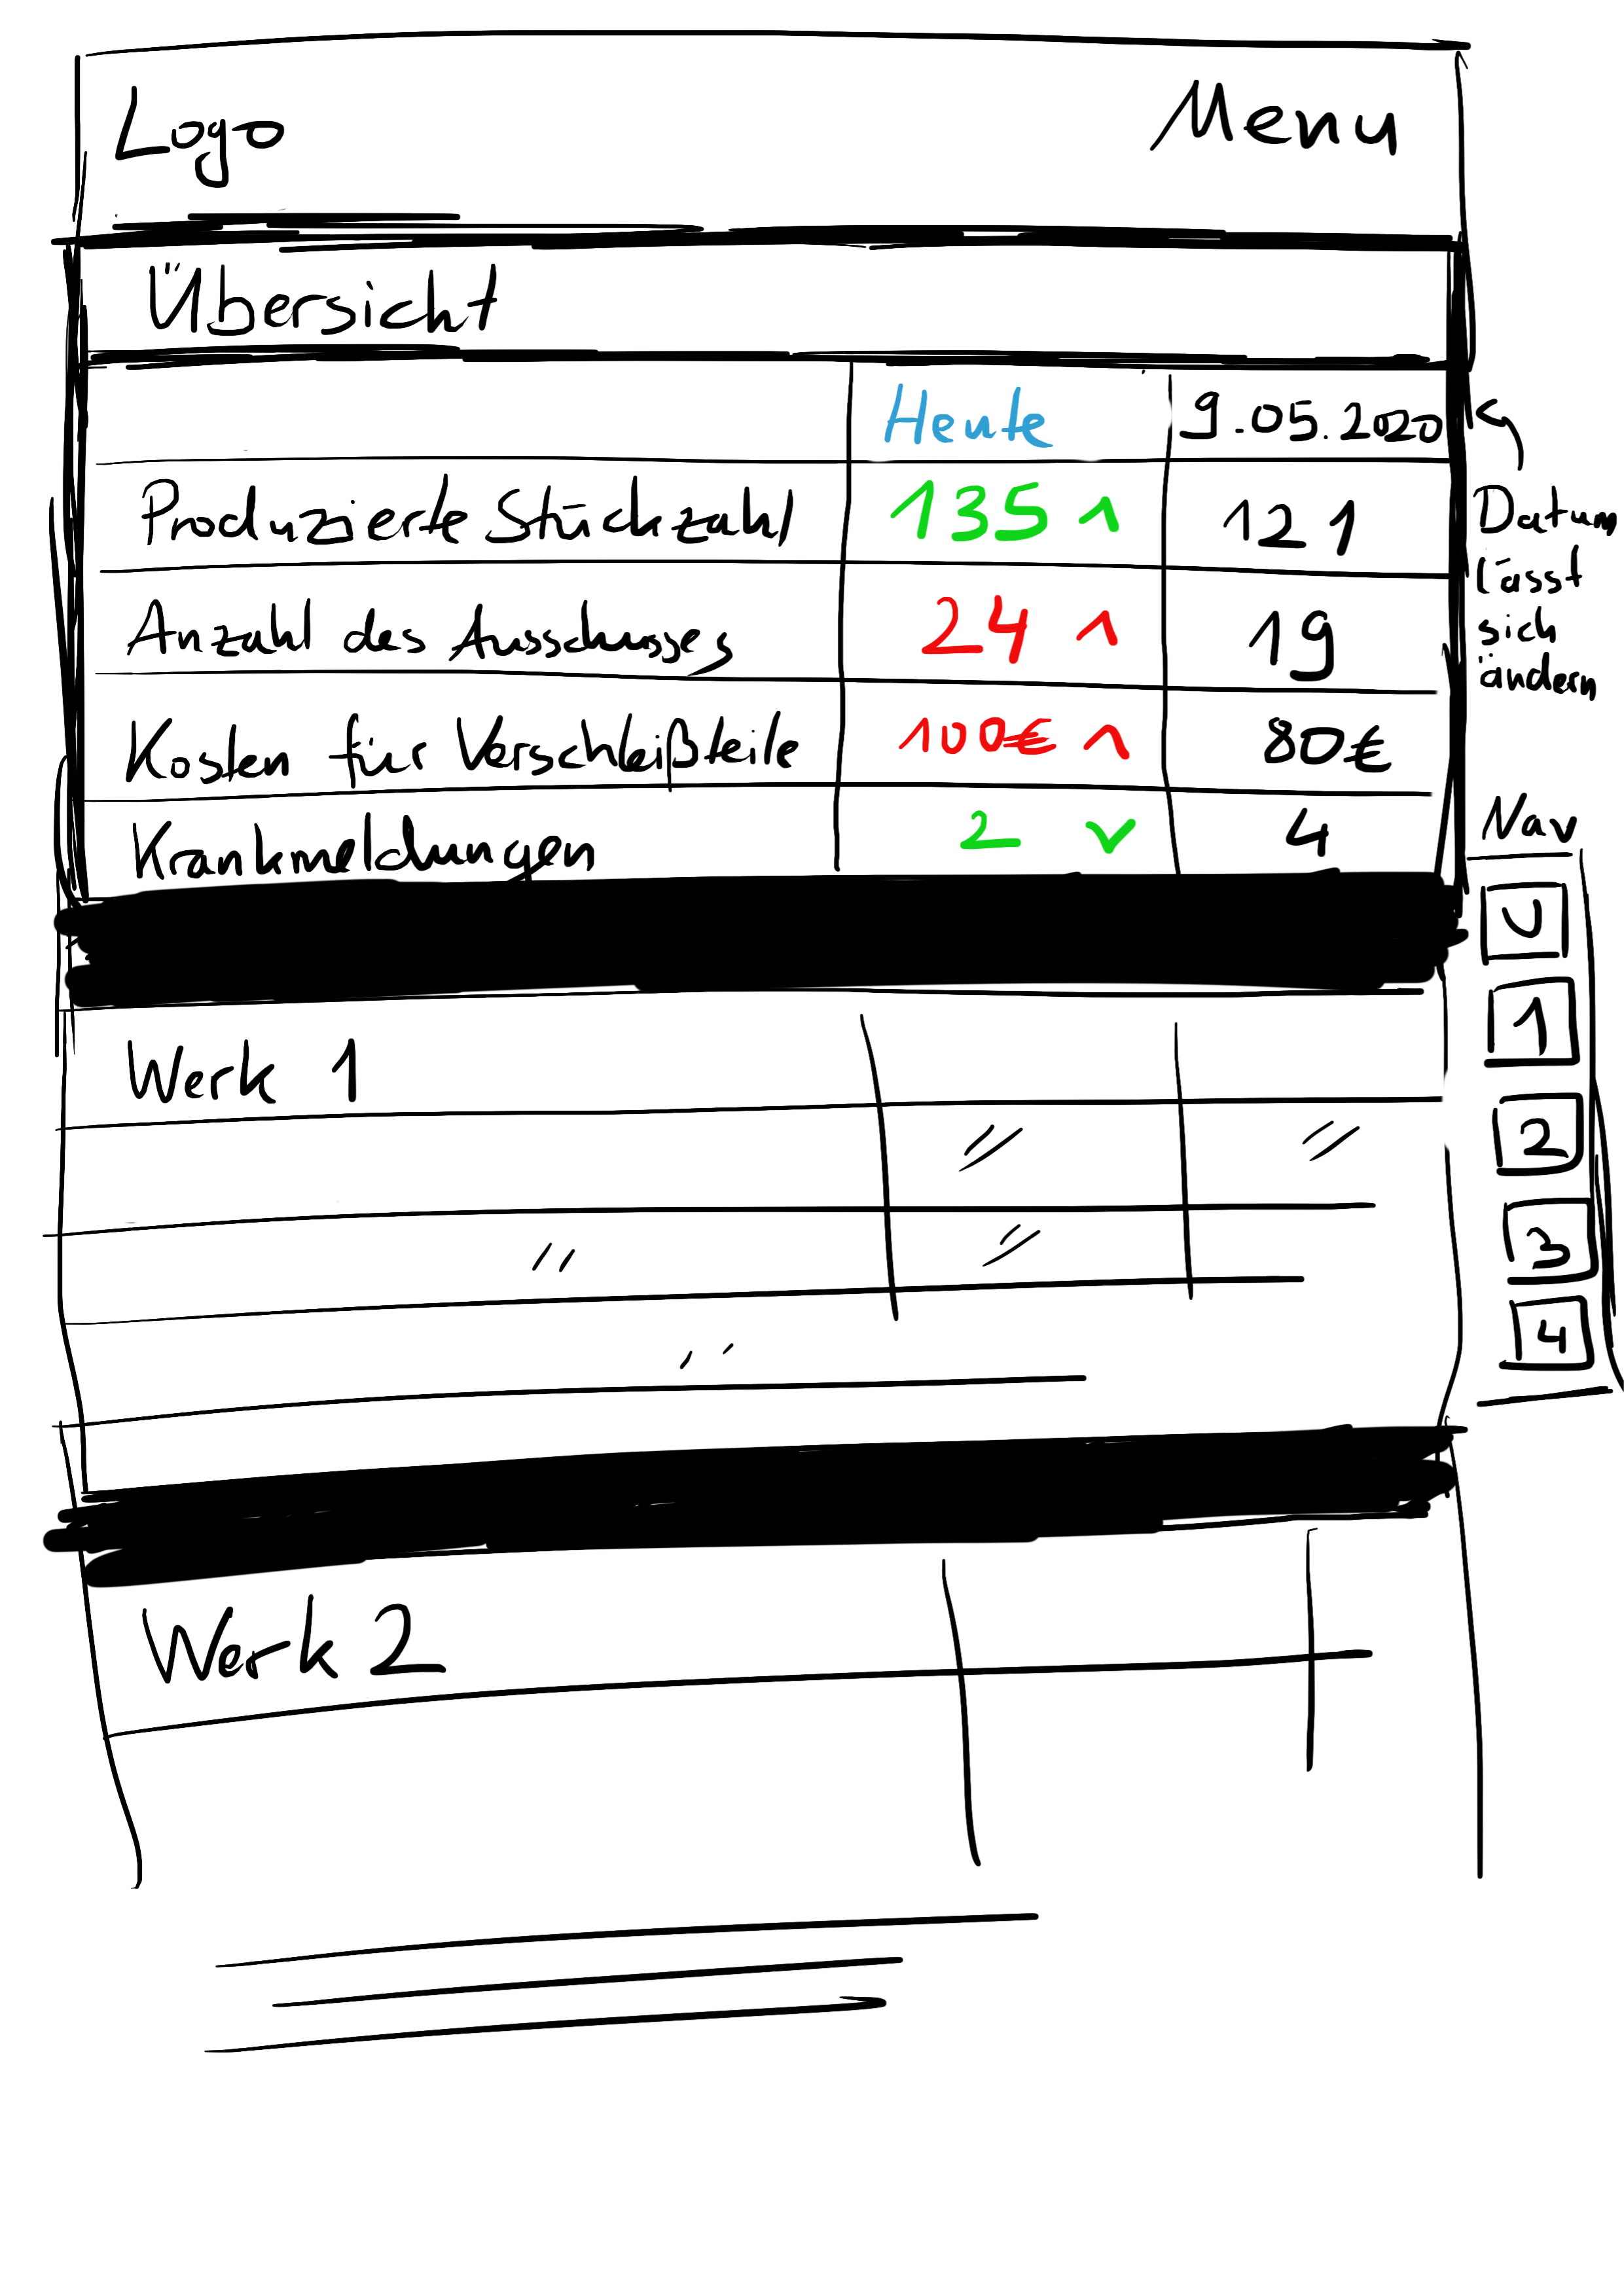 Logo Menu
Übersicht
Heute 9.05.2020
Produzierte Stückzahl 135 ^ 121
Anzahl des Ausschusses 24 ^ 19
Kosten für Verschleißteile 100€ ^ 80€
Krankmeldungen 2 v 4
Datum
lässt
sich
ändern
Nav
U
1
2
3
4
Werk 1
" "
" "
"
Werk 2